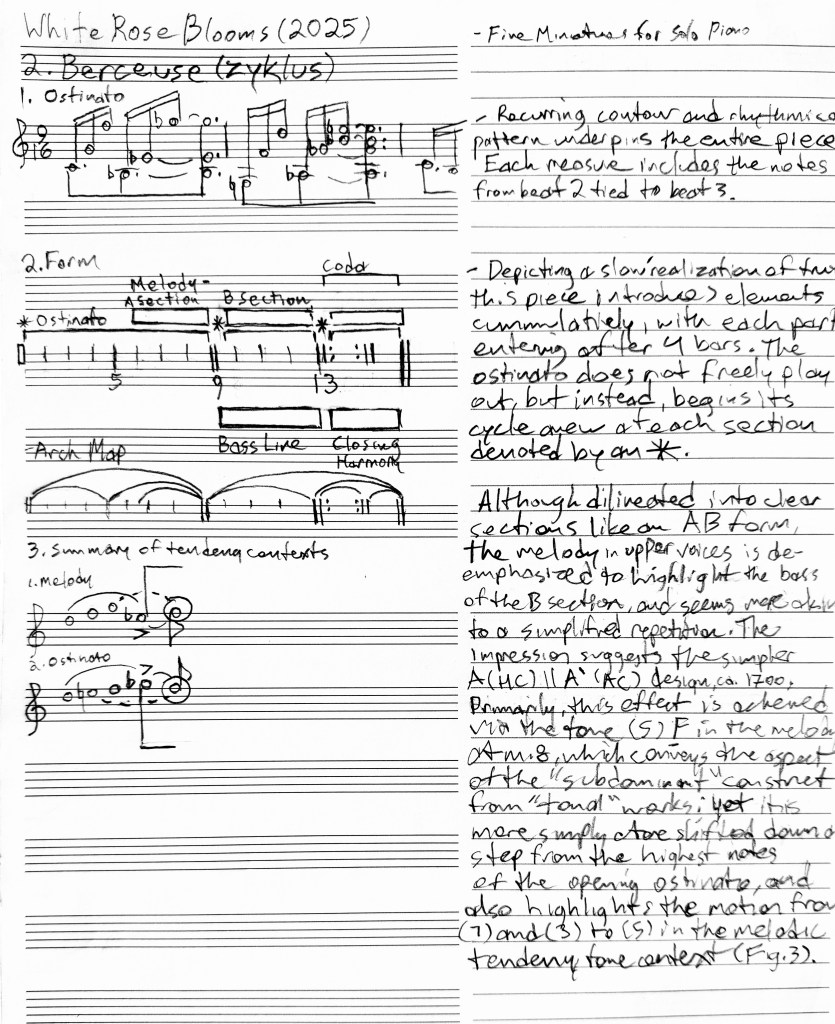 White Rose Blooms (2025)
- Five Miniatures for Solo Piano
2. Berceuse (zyklus)
1. Ostinato
9
16
- Recurring contour and rhythmic
pattern underpins the entire piece
Each measure includes the notes
from beat 2 tied to beat 3.
2. Form
Melody-
A section
B section
Coda
* Ostinato
*
*
5
9
13
Bass Line
Closing
Harmony
- Arch Map
- Depicting a slow realization of
this piece introduces elements
cummulatively, with each part
entering after 4 bars. The
ostinato does not freely play
out, but instead, begins its
cycle anew at each section
denoted by an *.
Although dilineated into clear
sections like an AB form,
the melody in upper voices is de-
emphasized to highlight the bass
of the B section, and seems more akin
to a simplified repetition. The
impression suggests the simpler
A(HC) || A'(AC) design, ca. 1700.
Primarily, this effect is acheived
via the tone (5) F in the melody
at m.8, which conveys the aspect
of the "subdominant" construct
from "tonal" works; yet it is
more simply a tone shifted down a
step from the highest notes
of the opening ostinato, and
also highlights the motion from
(7) and (3) to (5) in the melodic
tendency tone context (Fig. 3).
3. Summary of tendency contexts
1. Melody
2. Ostinato